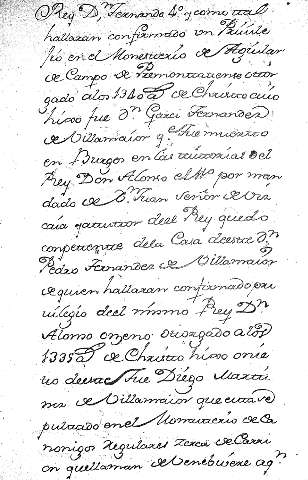 Rey Dn Fernando 4º y como tal
hallaran confirmado un Privile
gio en el Monesterio de Aguilar
de Campo de Premonstratense otor
gado a los 1340 de Christo cuio
hixo fue Dn Garci Fernandez
de Villamaior qe fue muerto
en Burgos en las tutorias del
Rey Don Alonso el por man
dado de Dn Juan Señor de Viz
caia tutor del Rey quedo
de la Casa de este Dn
Pedro Fernandez de Villamaior
de quien hallaran confirmado pri
vilegio de el mismo Rey Dn
Alonso onzeno otorgado a los
1335 de Christo hixo o nie
to de este fue Diego Marti
nez de Villamaior que esta se
pultado en el Monasterio de Ca
nonigos Reglares zerca de Carri
on que llaman de Benebivere aqn